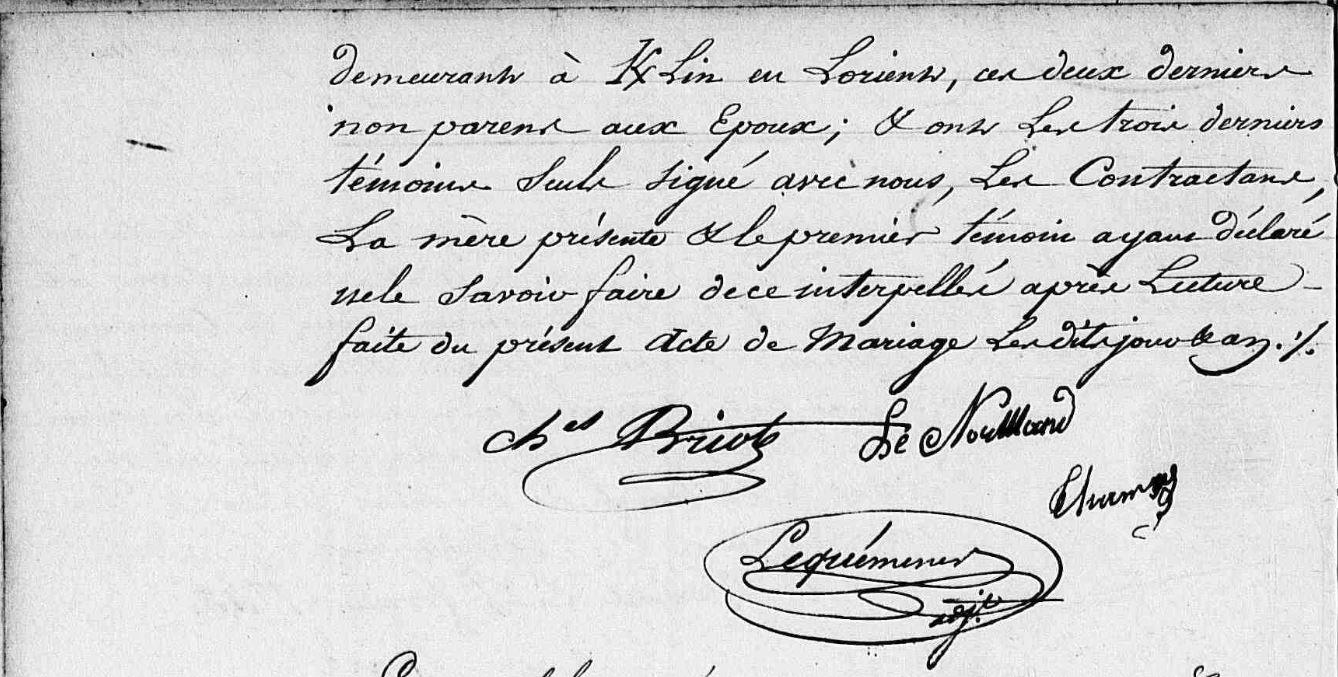 demeurant à Ꝃlin en Lorient, ces deux derniers
non parens aux Epoux; & ont Les trois derniers
témoins Seuls signé avec nous, Les Contractans,
La mère présente & le premier témoin ayant déclaré
ne le Savoir faire de ce interpellés après Lecture
faite du présent Acte de Mariage Les dits jour & an ./.
Ches Briot Le Normand
Lequémener
adjt